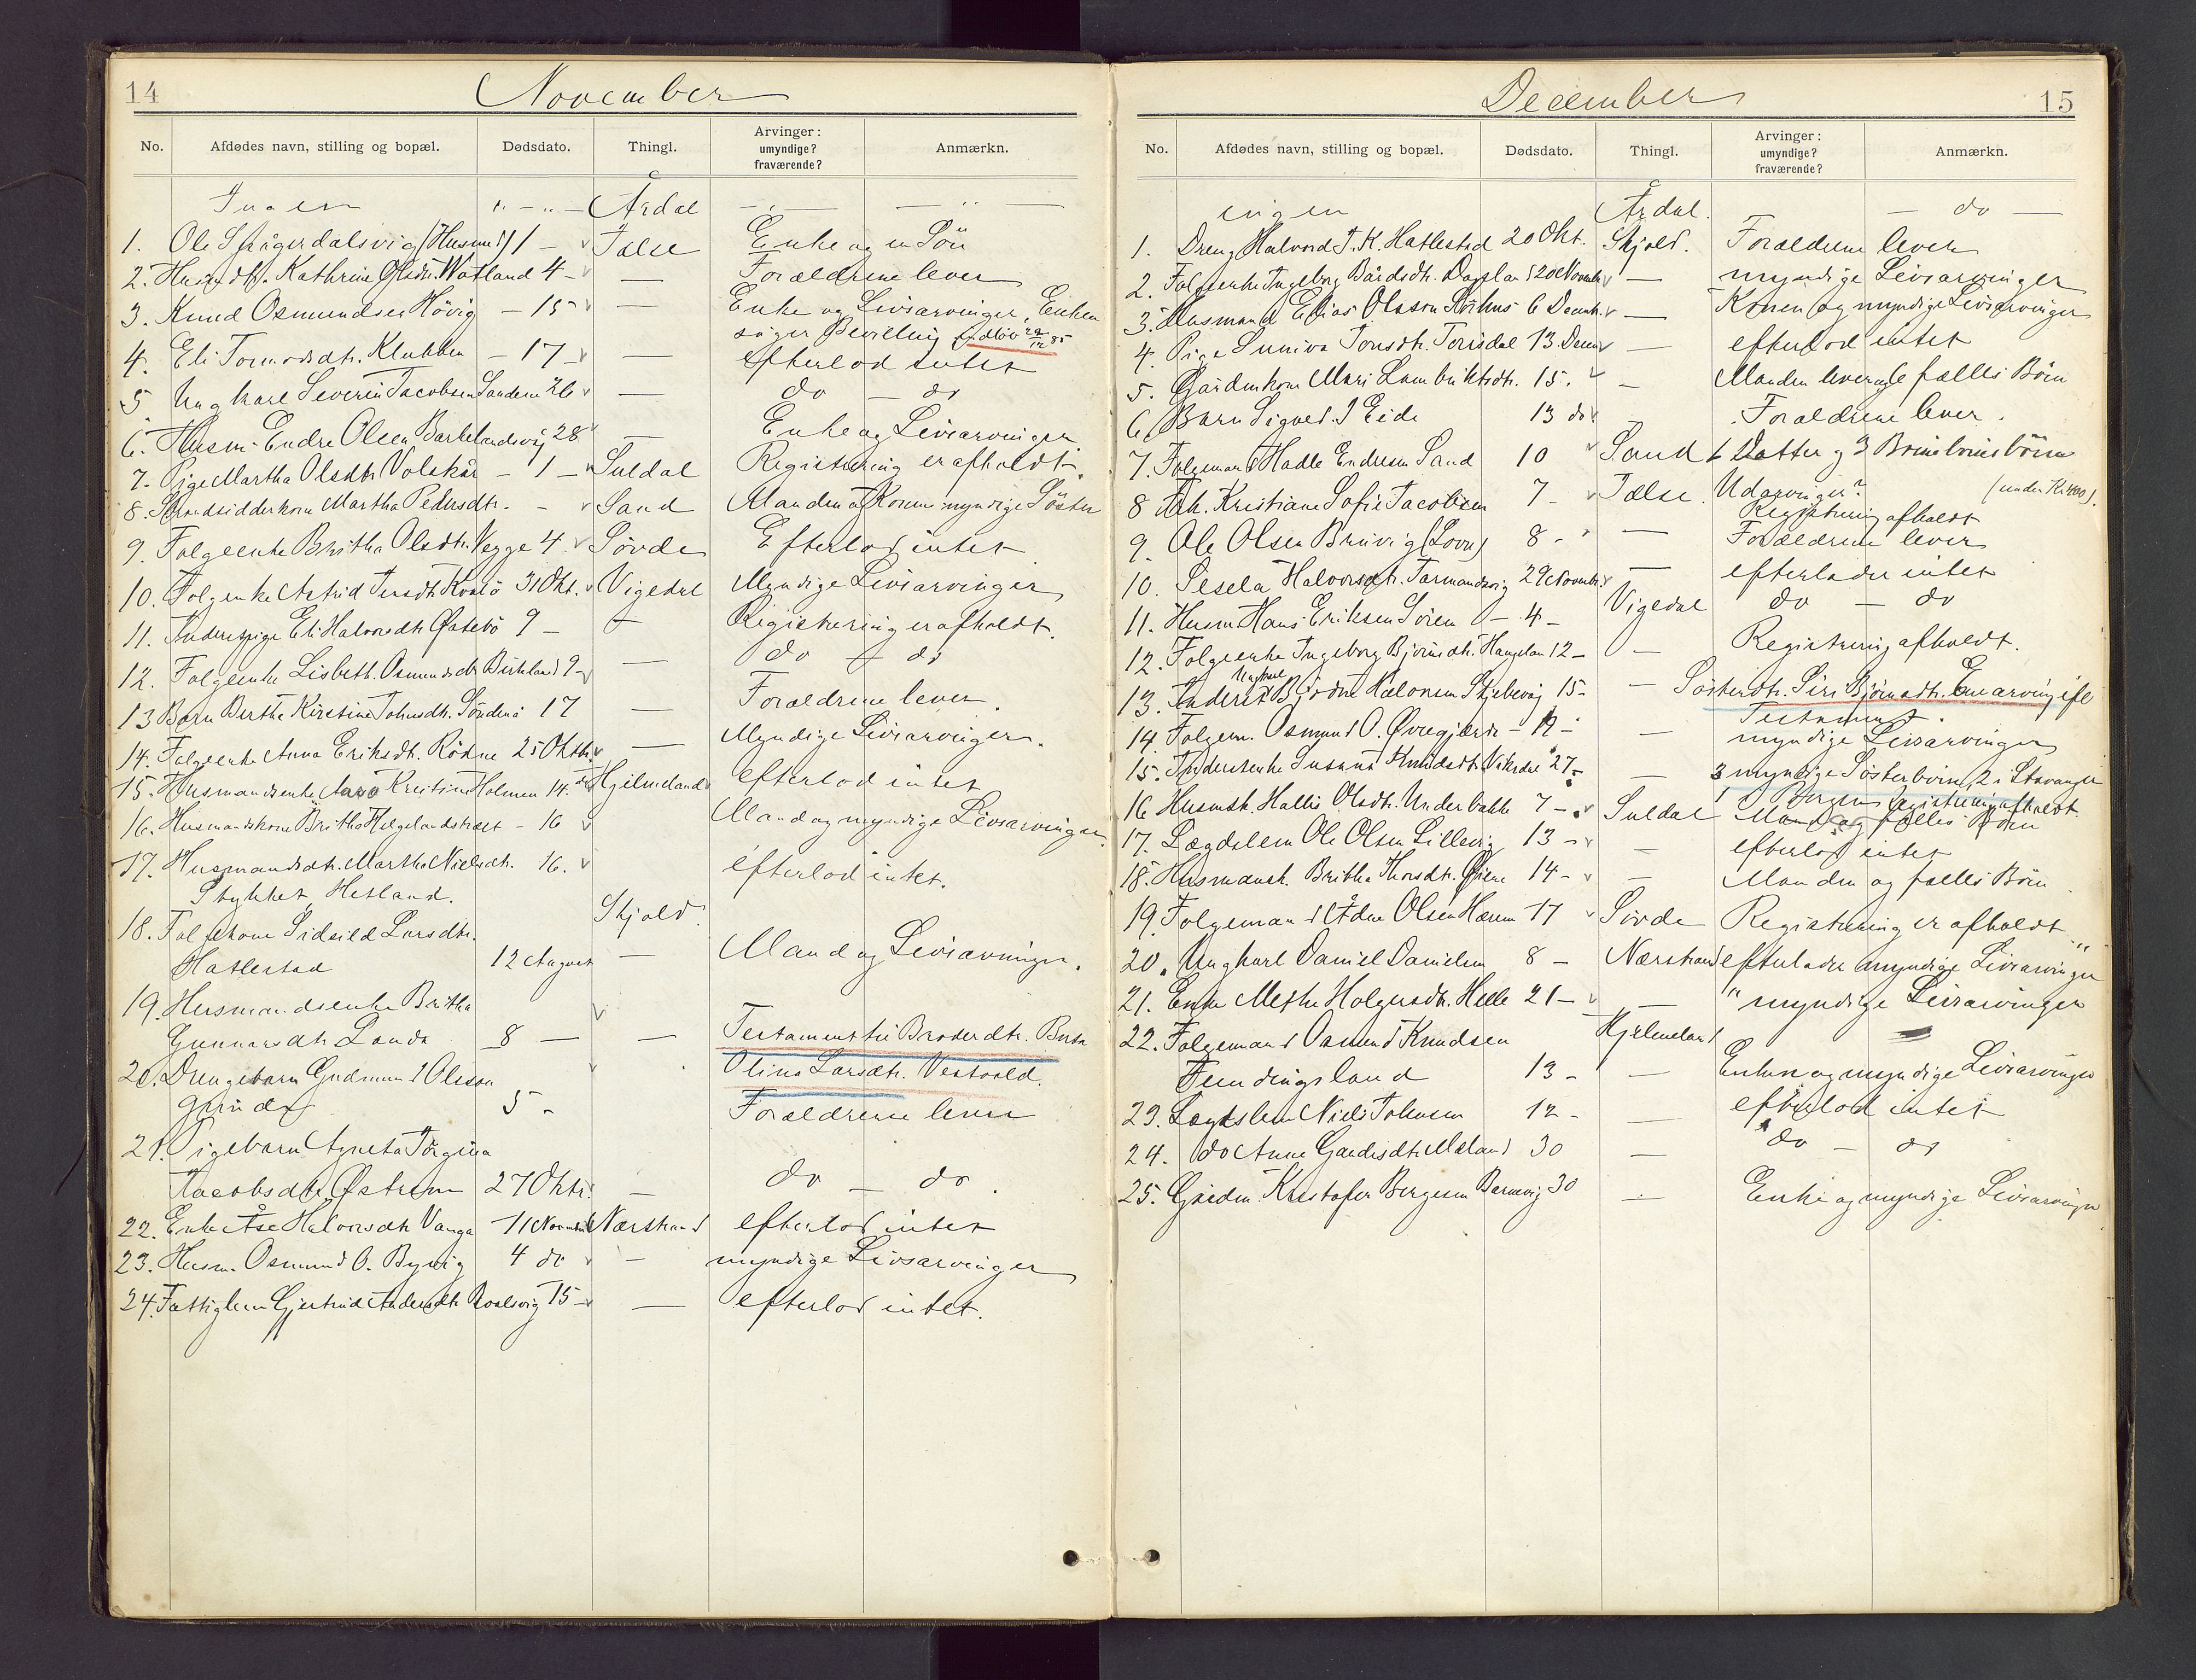 14
November
No. Afdødes navn, stilling og bopæl. Dødsdato. Thingl. Arvinger: umyndige? fraværende? Anmærkn.
Ingen " - " - Årdal
1. Ole (Husmd) 1 - Jælse Enke og en Søn
2. Kathrine Olsdtr. Watland 4 - — Forældrene lever
3. Knud Osmundsen Høvig - 15 — Enke og Livsarvinger, Enken
søger Bevilling
4. Eli Tormodsdtr. Klubben - 17 - — efterlod intet
5 Ungkarl Severin Jacobsen Sandene 26 — do — do
6. Husm. Endre Olsen 28 — Enke og Livsarvinger
7. Pige Martha Olsdtr. Volskår - 1 - Suldal Registrering er afholdt.
8. Strandsidderkone Martha Pedersdtr. - Sand Manden og Konens myndige Søster
9. Folgeenke Britha Olsdtr. Vegge 4. Søvde Efterlod intet
10. Folgenke Astrid 31 Okt. Vigedal Myndige Livsarvinger
11. Inderstpige Eli Halvorsdtr. Østebø 9 - — Registrering er afholdt.
12. Folgeenke Lisbeth Osmundsdtr. Birkeland 9 - — do — do
13 Barn Berthe Kirstine Johnsdtr. Søndenå 17 — Forældrene lever.
14. Folgeenke Anna Eriksdtr. Rødne 25 Oktbr. — Myndige Livsarvinger.
15. Husmandsenke Kristine Holmen 14. Hjelmeland efterlod intet
16. Husmandskone Britha Helgelandstræet - 16 Mand og myndige Livsarvinger
17. Husmandsdtr. Martha Nielsdtr. 16. efterlod intet.
Stykket, Hetland.
Skjold
18. Folgekone Sidsild Larsdtr.
Hatlestad 12 August — Mand og Livsarvinger.
19. Husmandsenke Britha
Gunnarsdtr. Landa 8 — — Testament til Broderdtr. Berta
Olina Larsdtr. Vestvold.
20. Drengebarn Gudmund Olsson
Grinde 5 - Forældrene lever
21. Pigebarn Agneta Törgina
Jacobsdtr. Østrem 27 Oktr. — do — do.
22. Enke Åse Halvorsdtr. Vanga 11 November Nærstrand efterlod intet
23. Husm. Osmund O. Byvig 4 do — myndige Livsarvinger
24. Fattiglem Gjertrud Andersdtr. 15 - — efterlod intet.
December
15
No. Afdødes navn, stilling og bopæl. Dødsdato. Thingl. Arvinger: umyndige? fraværende? Anmærkn.
ingen Årdal. — do —
1. Dreng Halvord T. K. Hatlestad 20 Okt. Skjold. Forældrene lever
2. Folgeenke Ingeborg Bårdsdtr. 20 November — myndige Livsarvinger
3. Husmand Elias Olsson 6 Decembr. — Konen og myndige Livsarvinger
4. Pige Sunniva Tonsdtr. 13. Decem — efterlod intet
5. Gårdmkone Mari Lambriktsdtr. 15. — Manden lever og fælles Börn
6. Barn Sigved J Eide 13 do — Forældrene lever.
7. Folgemand Hadle Endresen Sand 10 Sand 1 Datter og 3
8 Kristiane Sofie Jacobsen 7 - Jælse. Udarvinger? (under Kr. 400).
Registrering afholdt
9. Ole Olsen Bruvig (Lovra) 8 - — Forældrene lever
10. Sesela Halvorsdtr. Tarmandsvig 29 Novembr. — efterlader intet
11. Husm Hans Eriksen - 4 - Vigedal do — do
12. Folgeenke Ingeborg Bjørnsdtr. 12 - — Registrering afholdt.
Ungkarl
13. Inderst 15 - — Søsterdtr. Siri Bjørnsdtr. Enearving ifl
Testament.
14. Folgem. Osmund O. Øvregjærde - — myndige Livsarvinger
15. Inderstenke Susanna Knudsdtr. Vikedal 27 - — 3 myndige Søsterbörn, 2 i Stavanger
1 Bergen Registrering afholdt.
16 Husmsk. Hallis Olsdtr. Underbakke 7 - Suldal Mand og fælles Börn
17. Lægdslem Ole Olsen Lillevig 13 - — efterlod intet
18. Husmansk. Britha Thorsdtr. Øiene 14 - — Manden og fælles Börn
19. Folgemand Ådne Olsen 17 Søvde Registrering er afholdt
20. Ungkarl Daniel Danielsen 8 - Nærstrand efterlader myndige Livsarvinger
21. Enke Methe Holgersdtr. Helle 21 - — " myndige Livsarvinger
22. Folgemand Osmund Knudsen Hjelmeland
Fundingsland 13 - — Enken og myndige Livsarvinger
23. Lægdslem Niels Johnsen 12 - — efterlod intet
24. do Anne Gardsdtr. Mæland 30 — do — do
25. Gårdm. Kristofer Børgesen 30 — Enke og myndige Livsarvinger